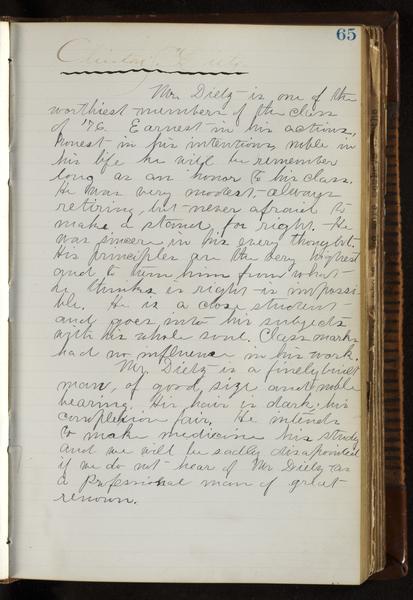 65
Mr. Dietz is one of the
worthiest members of the class
of '76. Earnest in his actions,
honest in his intentions, noble in
his life he will be remember
long as an honor to his class.
He was very modest, always
retiring, but never afraid to
make a stand for right. He
was sincere in his every thought.
His principles are the very highest
and to turn him from what
he thinks is right is impossi-
ble. He is a close student
and goes into his subjects
with his whole soul. Class marks
had no influence in his work.
Mr. Dietz is a finely built
man, of good size and noble
bearing. His hair is dark, his
complexion fair. He intends
to make medicine his study
and we will be sadly disapointed
if we do not hear of Mr Dietz as
a professional man of great
renown.